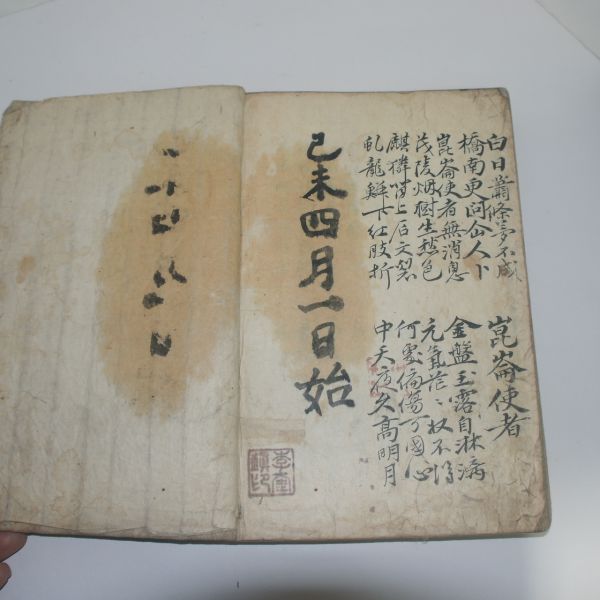 白日蕭條夢不成
橋南更問仙人卜
崑崙使者
崑崙使者無消息
茂陵烟樹生愁色
金盤玉露自淋漓
元氣茫〻收不得
麒獜背上石文裂
虬龍鱗下紅肢折
何處偏傷万國心
中天夜久高明月
己未四月一日始